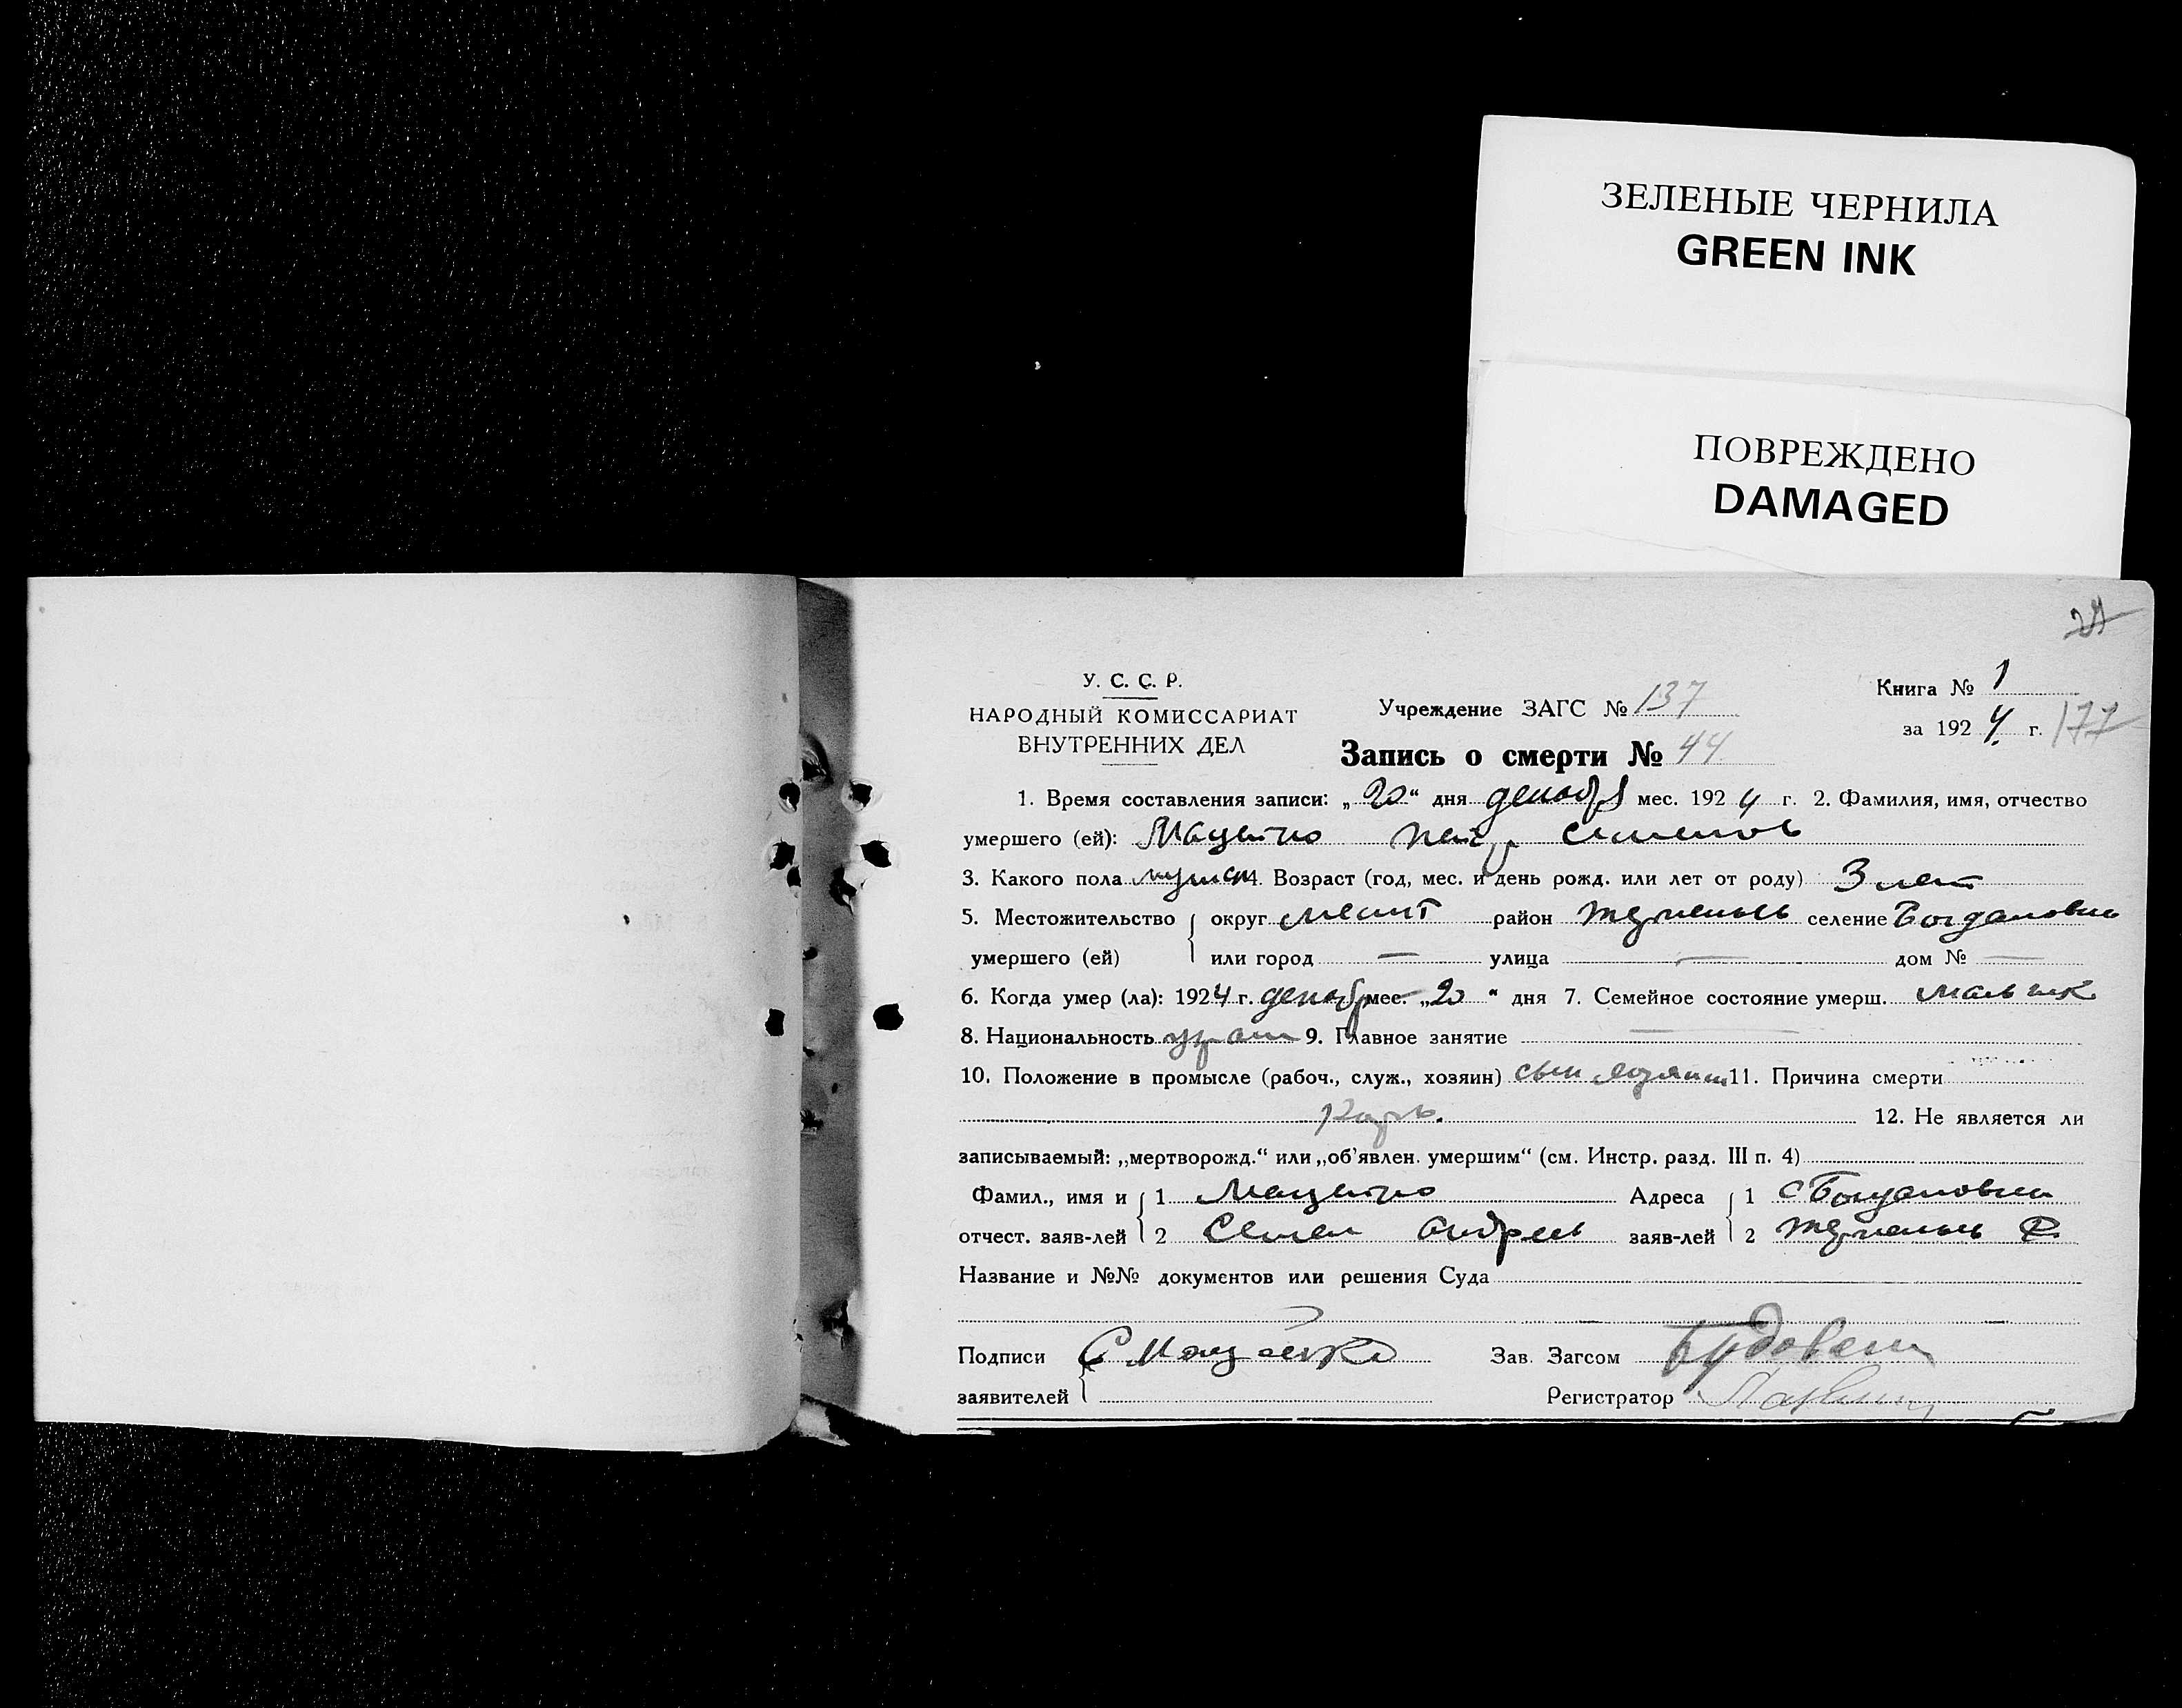 ЗЕЛЕНЫЕ ЧЕРНИЛА
GREEN INK
ПОВРЕЖДЕНО
DAMAGED
У. С. С. Р.
НАРОДНЫЙ КОМИССАРИАТ
ВНУТРЕННИХ ДЕЛ
Учреждение ЗАГС № 137
Книга № 1
за 1924 г. 177
Запись о смерти № 44
1. Время составления записи: „20“ дня декабр мес. 1924 г. 2. Фамилия, имя, отчество
умершего (ей): Маценко Петр Семенов
3. Какого пола мужск 4. Возраст (год, мес. и день рожд. или лет от роду) 3 лет
5. Местожительство округ район селение Богдановка
умершего (ей) или город — улица — дом № —
6. Когда умер (ла): 1924 г. декабр мес. „20“ дня 7. Семейное состояние умерш. мальчик
8. Национальность 9. Главное занятие —
10. Положение в промысле (рабоч., служ., хозяин) сын хозяин 11. Причина смерти
Корь.
12. Не является ли
записываемый: „мертворожд.“ или „об'явлен. умершим“ (см. Инстр. разд. III п. 4)
Фамил., имя и 1 Маценко Адреса 1 с Богдановка
отчест. заяв-лей 2 Семен Андреев заяв-лей 2
Название и №№ документов или решения Суда
Подписи С Маценко Зав. Загсом
заявителей Регистратор